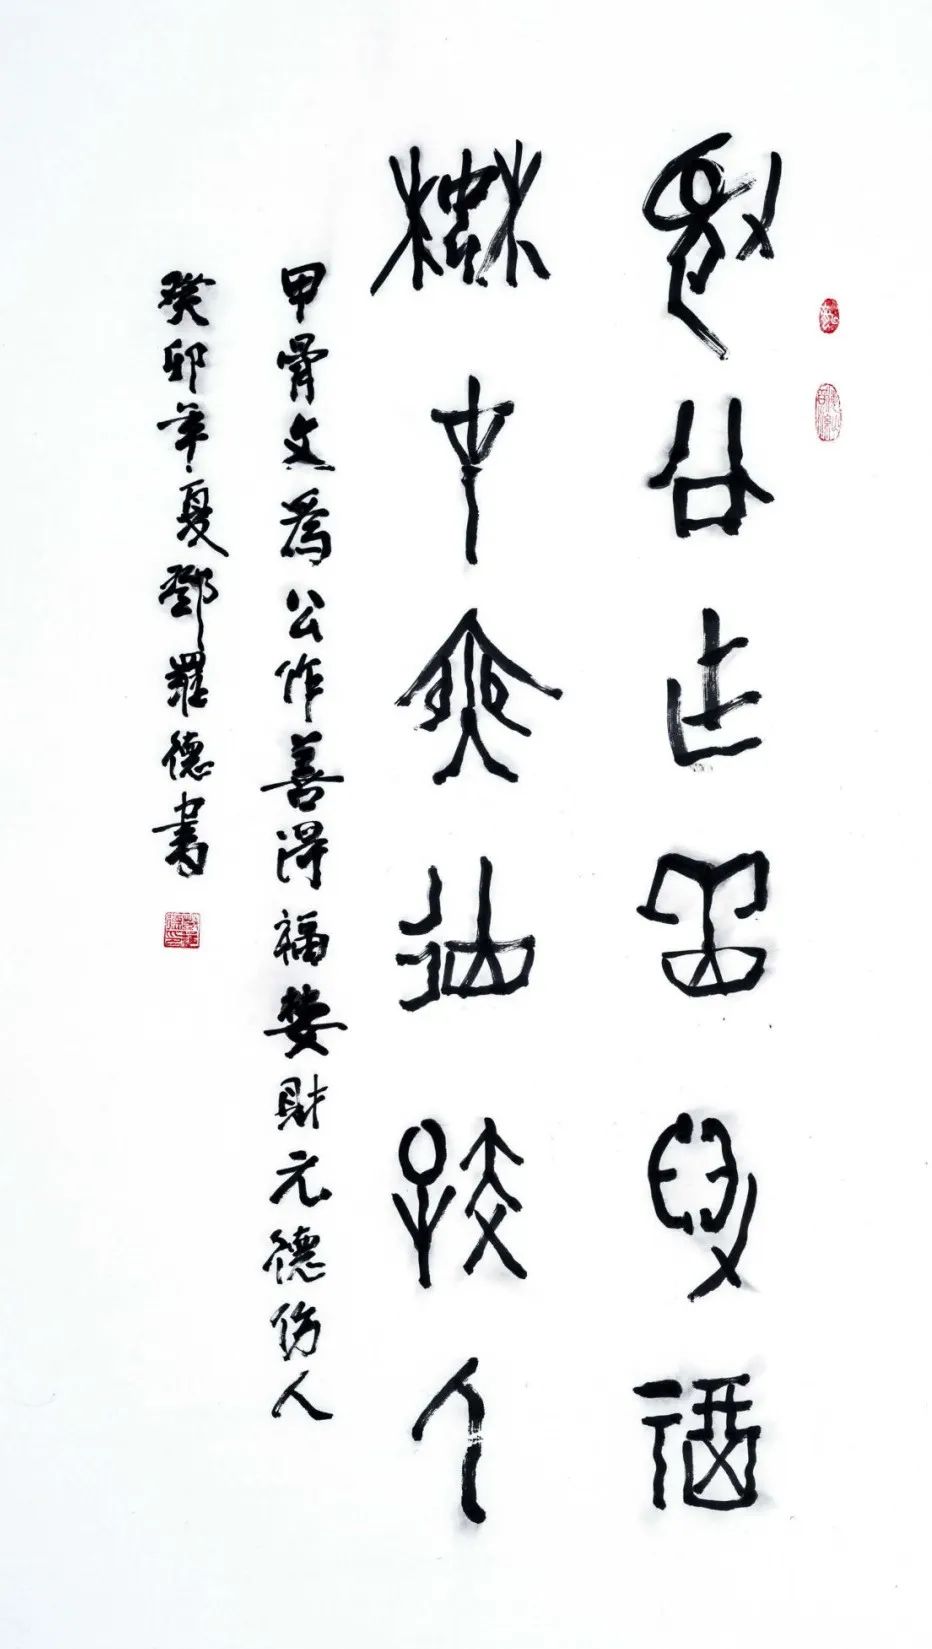 為公作善得福
婪財无德傷人
甲骨文為公作善得福婪財无德傷人
癸卯年夏鄧羅德書